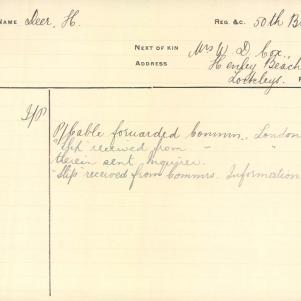 NAME Deer, H. REG. &C. 50th B
NEXT OF KIN Mrs W. D. Cox.,
ADDRESS Henley Beach
P/P Cable forwarded Commrs., London
"Slip" received from " "
therein sent inquirer.
"Slip" received from Commrs. Information